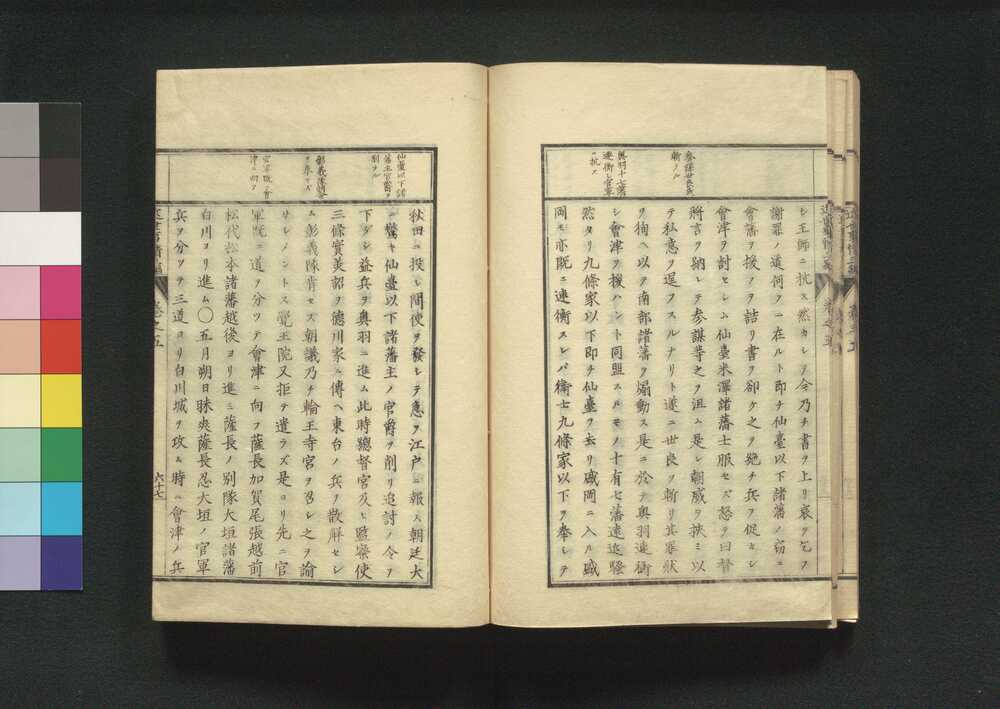 シ王師ニ抗ス然カレ𪜈今乃チ書ヲ上リ哀ヲ乞フ
謝罪ノ道何クニ在ルト即チ仙臺以下諸藩ノ窃ニ
會藩ヲ援クヲ詰リ書ヲ卻ケ之ヲ絶チ兵ヲ促カシ
會津ヲ討セシム仙臺米澤諸藩士服セズ怒ヲ曰督
將言ヲ納レテ參謀等之ヲ沮ム是レ朝威ヲ挾ミ以
テ私意ヲ逞フスルナリト遂ニ世良ヲ斬リ其罪狀
ヲ掲ヘ以テ南部諸藩ヲ煽動ス是ニ於テ奥羽連衡
シ會津ヲ援ハント同盟スルモノ十有七藩遠近騷
然タリ九條家以下即チ仙臺ヲ去リ盛岡ニ入ル盛
岡モ亦既ニ連衡スレバ衛士九條家以下ヲ奉シテ
參謀世良氏
斬ラル
奥羽十七藩
連衡シ官軍
ニ抗ス
秋田ニ投シ間使ヲ發シテ急ヲ江戸ニ報ス朝廷大
ニ驚キ仙臺以下諸藩主ノ官爵ヲ削リ追討ノ令ヲ
下ダシ益兵ヲ奥羽ニ進ム此時總督官及ヒ監察使
三條實美詔ヲ德川家ニ傳ヘ東台ノ兵ヲ散解セシ
ム彰義隊肯セズ朝議乃チ輪王寺宮ヲ召シ之ヲ諭
サシメントス覺王院又拒テ遣ラズ是ヨリ先ニ官
軍既ニ道ヲ分ツテ會津ニ向フ薩長加賀尾張越前
松代松本諸藩越後ヨリ進ミ薩長ノ別隊大垣諸藩
白川ヨリ進ム〇五月朔日昧爽薩長忍大垣ノ官軍
兵ヲ分ツテ三道ヨリ白川城ヲ攻ム時ニ會津ノ兵
仙臺以下諸
藩主官爵ヲ
削ラル
卷之五
六十七